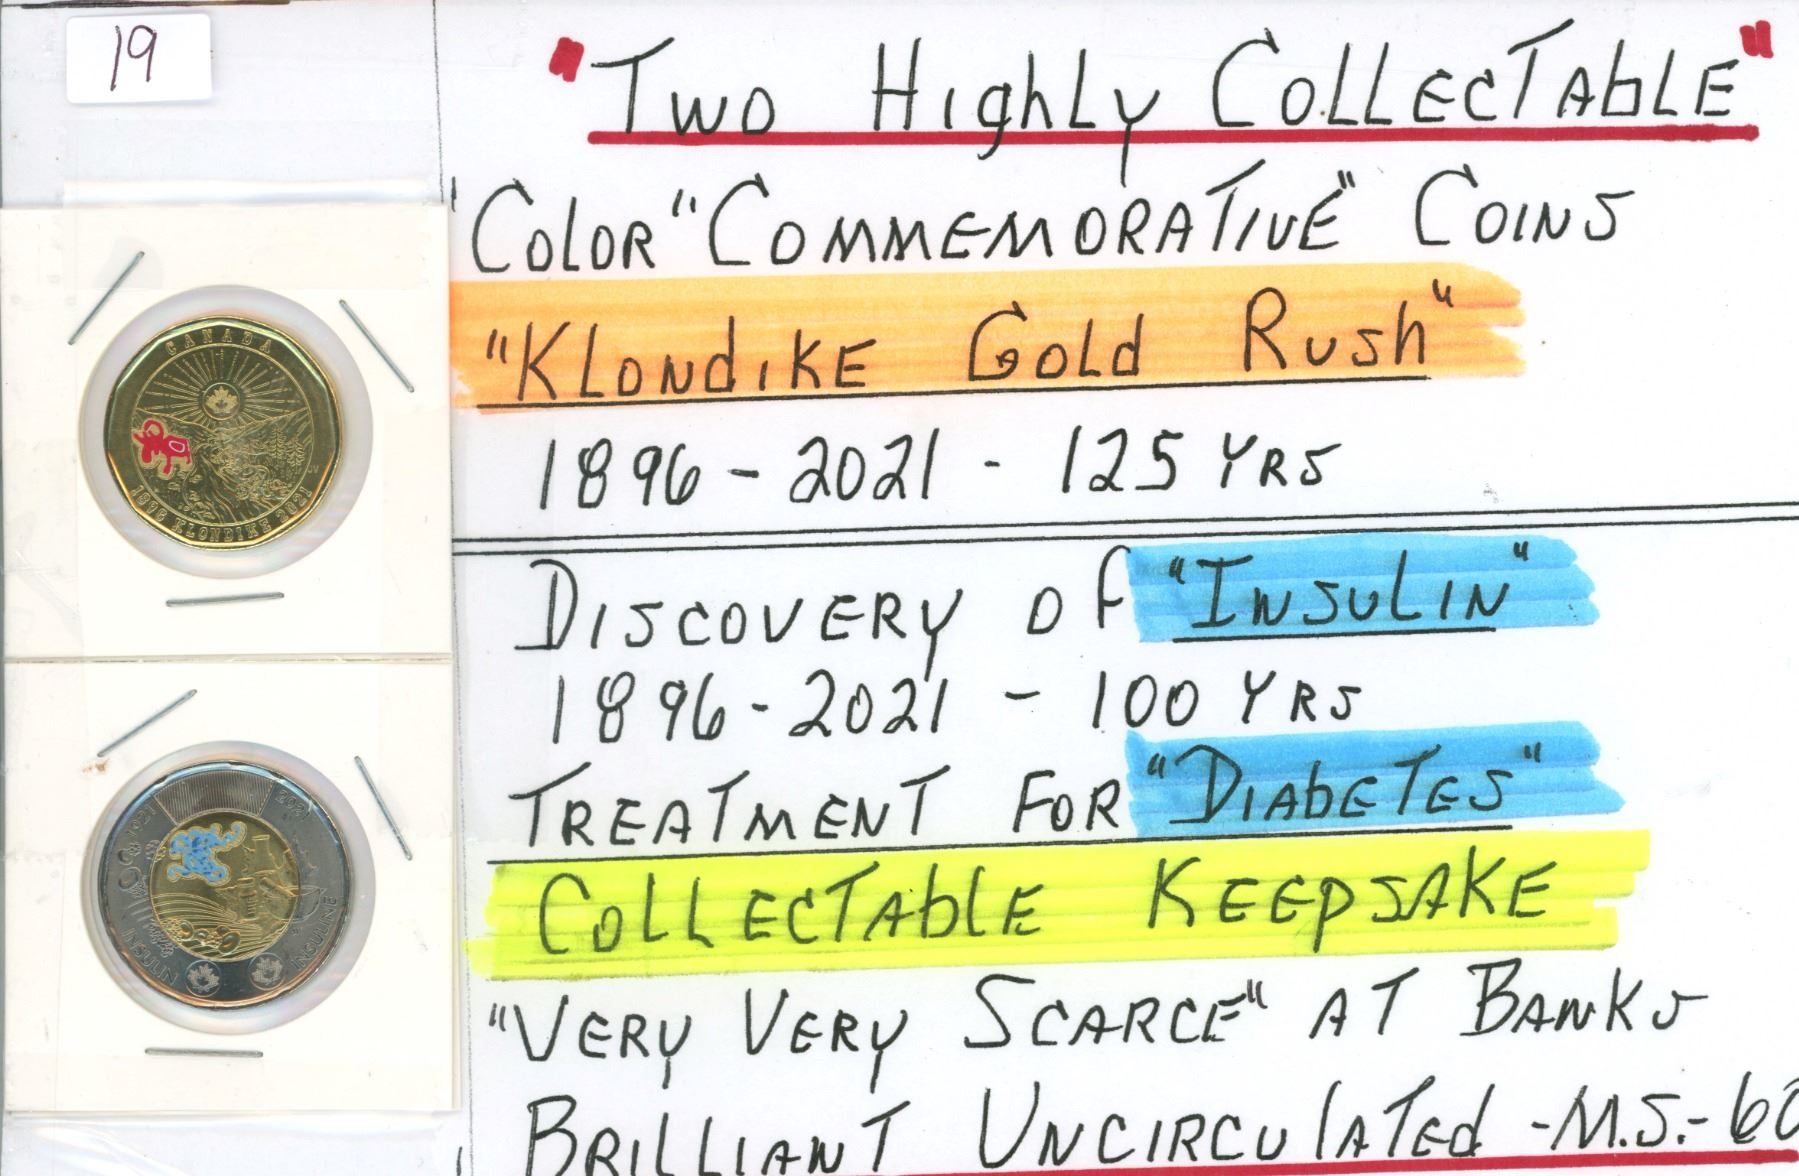 19
"Two Highly Collectable"
"Color "Commemorative" Coins
"Klondike Gold Rush"
1896 - 2021 - 125 Yrs
Discovery of "Insulin"
1896 - 2021 - 100 Yrs
Treatment for "Diabetes"
Collectable Keepsake
"Very Very Scarce" at Banks
Brilliant Uncirculated - M.S. - 60
CANADA
JV
1896 KLONDIKE 2021
1921 2021
INSULIN INSULINE